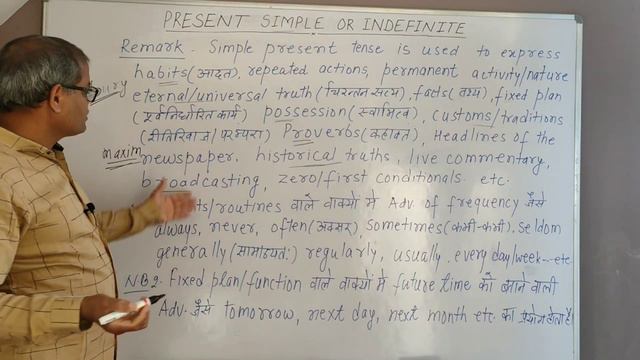 PRESENT SIMPLE OR INDEFINITE
Remark - Simple present tense is used to express
habits (आदत), repeated actions, permanent activity/nature
eternal/universal truth (चिरन्तन सत्य), facts (तथ्य), fixed plan
(पूर्वनिर्धारित कार्य) possession (स्वामित्व), customs/traditions
(रीतिरिवाज/परम्परा) Proverbs (कहावत), Headlines of the
maxim newspaper. historical truths, live commentary,
broadcasting, zero/first conditionals etc.
वाले वाक्यों मे Adv. of frequency जैसे
always, never, often (अक्सर), sometimes (कभी-कभी), seldom
generally (सामान्यतः) regularly, usually, every day/week... etc
N.B 2. Fixed plan/function वाले वाक्यों मे future time को बताने वाली
Adv. जैसे tomorrow, next day, next month etc. का प्रयोग होता है